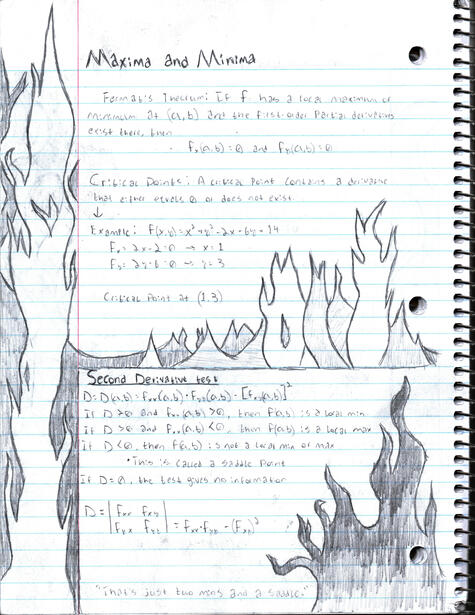 Maxima and Minima
Fermat's Theorum: If f has a local maximum or
minimum at (a,b) and the first-order partial derivatives
exist there, then
fx(a,b)=0 and fy(a,b)=0
Critical Points: A critical point contains a derivative
that either equals 0 or does not exist.
↓
Example: f(x,y)=x²+y²-2x-6y+14
Fx=2x-2=0 → x=1
Fy=2y-6=0 → y=3
Critical Point at (1,3)
Second Derivative test
D=D(a,b)=fxx(a,b)·fyy(a,b)-[fxy(a,b)]²
If D>0 and fxx(a,b)>0, then f(a,b) is a local min
If D>0 and fxx(a,b)<0, then f(a,b) is a local max
If D<0, then f(a,b) is not a local min or max
•This is called a saddle point
If D=0, the test gives no information
D=|fxx fxy
fyx fyy|=fxx·fyy-(fxy)²
"That's just two mens and a saddle."